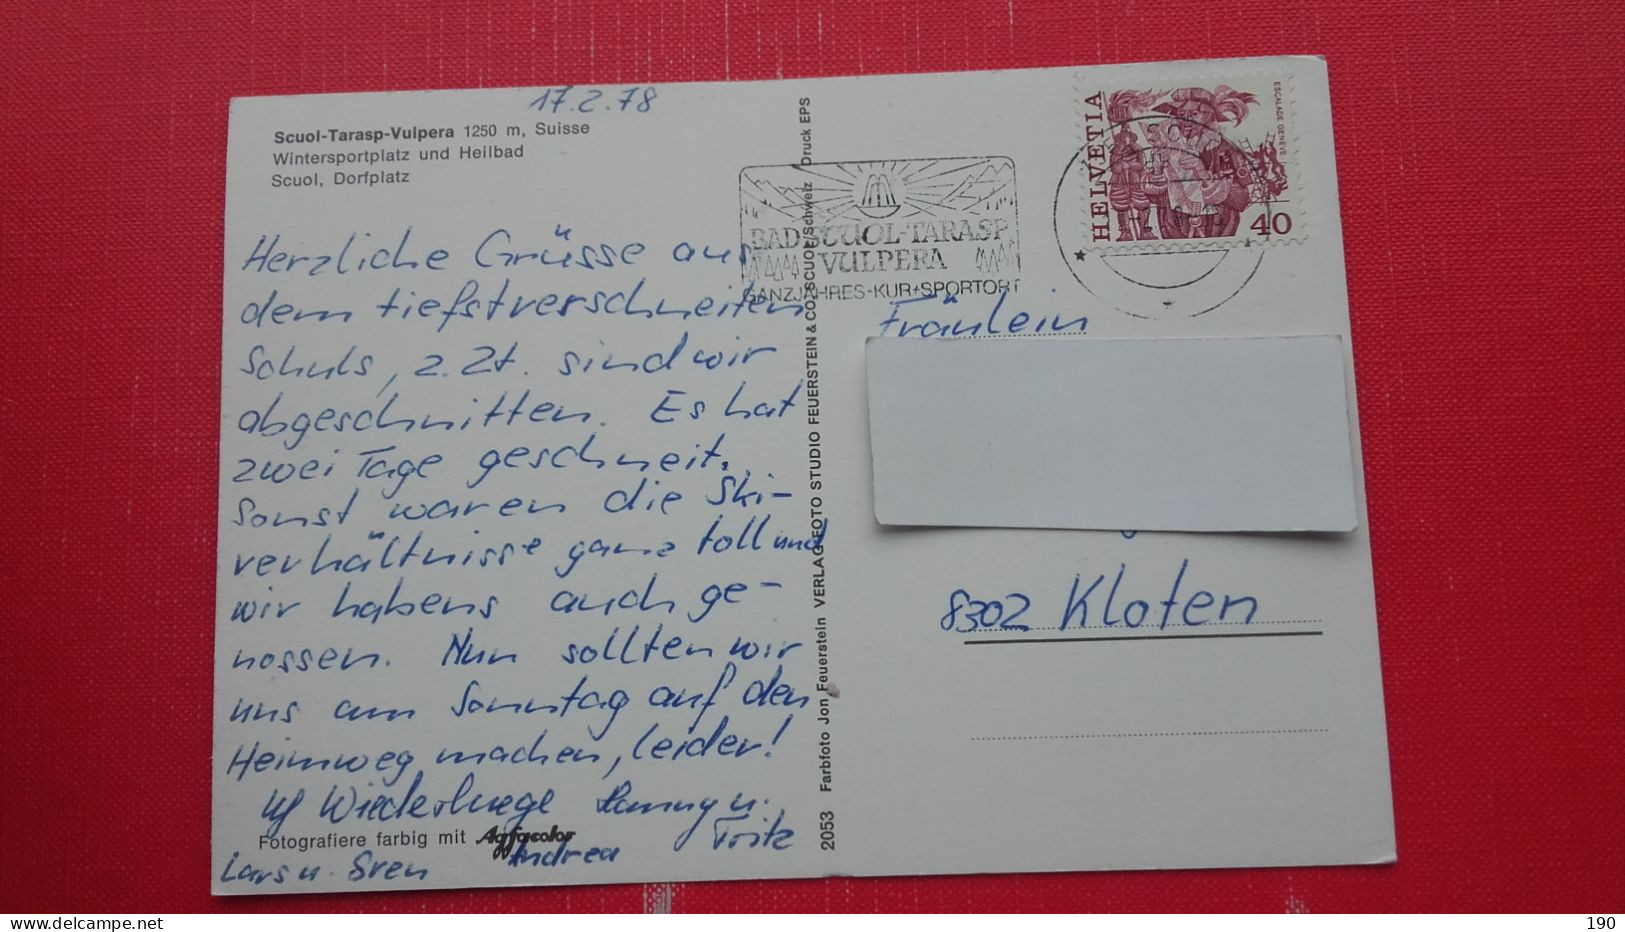 17.2.78
Scuol-Tarasp-Vulpera 1250 m, Suisse
Wintersportplatz und Heilbad
Scuol, Dorfplatz
Herzliche Grüsse aus
dem tiefstverschneiten
Schuls, z. Zt. sind wir
abgeschnitten. Es hat
zwei Tage geschneit.
Sonst waren die Ski-
verhältnisse ganz toll und
wir habens auch ge-
nossen. Nun sollten wir
uns am Sonntag auf den
Heimweg machen, leider!
Uf Wiederluege Hanny u.
Fritz
Fotografiere farbig mit Agfacolor
Lars u. Sven Andrea
2053 Farbfoto Jon Feuerstein VERLAG FOTO STUDIO FEUERSTEIN & CO. SCUOL/Schweiz Druck EPS
BAD SCUOL-TARASP
VULPERA
GANZJAHRES-KUR+SPORTORT
HELVETIA
ESCALADE GENÈVE
40
Fräulein
8302 Kloten
190